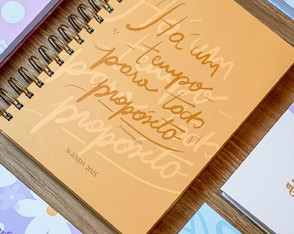 Há um
tempo
para todo
propósito
AGENDA 2025